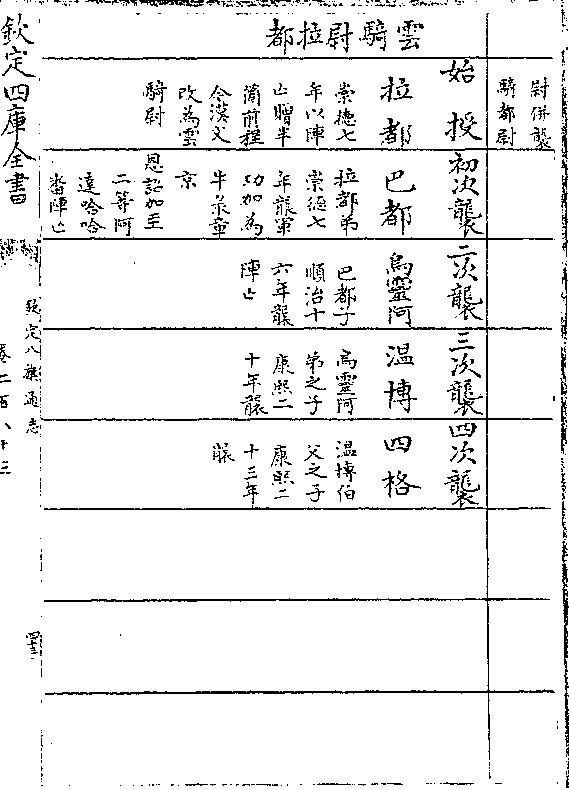 尉併襲
騎都尉
雲騎尉拉都
始授
拉都
崇德七
年以陣
亡贈半
箇前程
今漢文
改為雲
騎尉
初次襲
巴都
拉都弟
崇德七
年襲軍
功加為
牛彔章
京
恩詔加至
二等阿
達哈哈
番陣亡
二次襲
烏靈阿
巴都子
順治十
六年襲
陣亡
三次襲
温博
烏靈阿
弟之子
康熙二
十年襲
四次襲
四格
温博伯
父之子
康熙二
十三年
襲
欽定四庫全書
欽定八旗通志
卷二百八十三